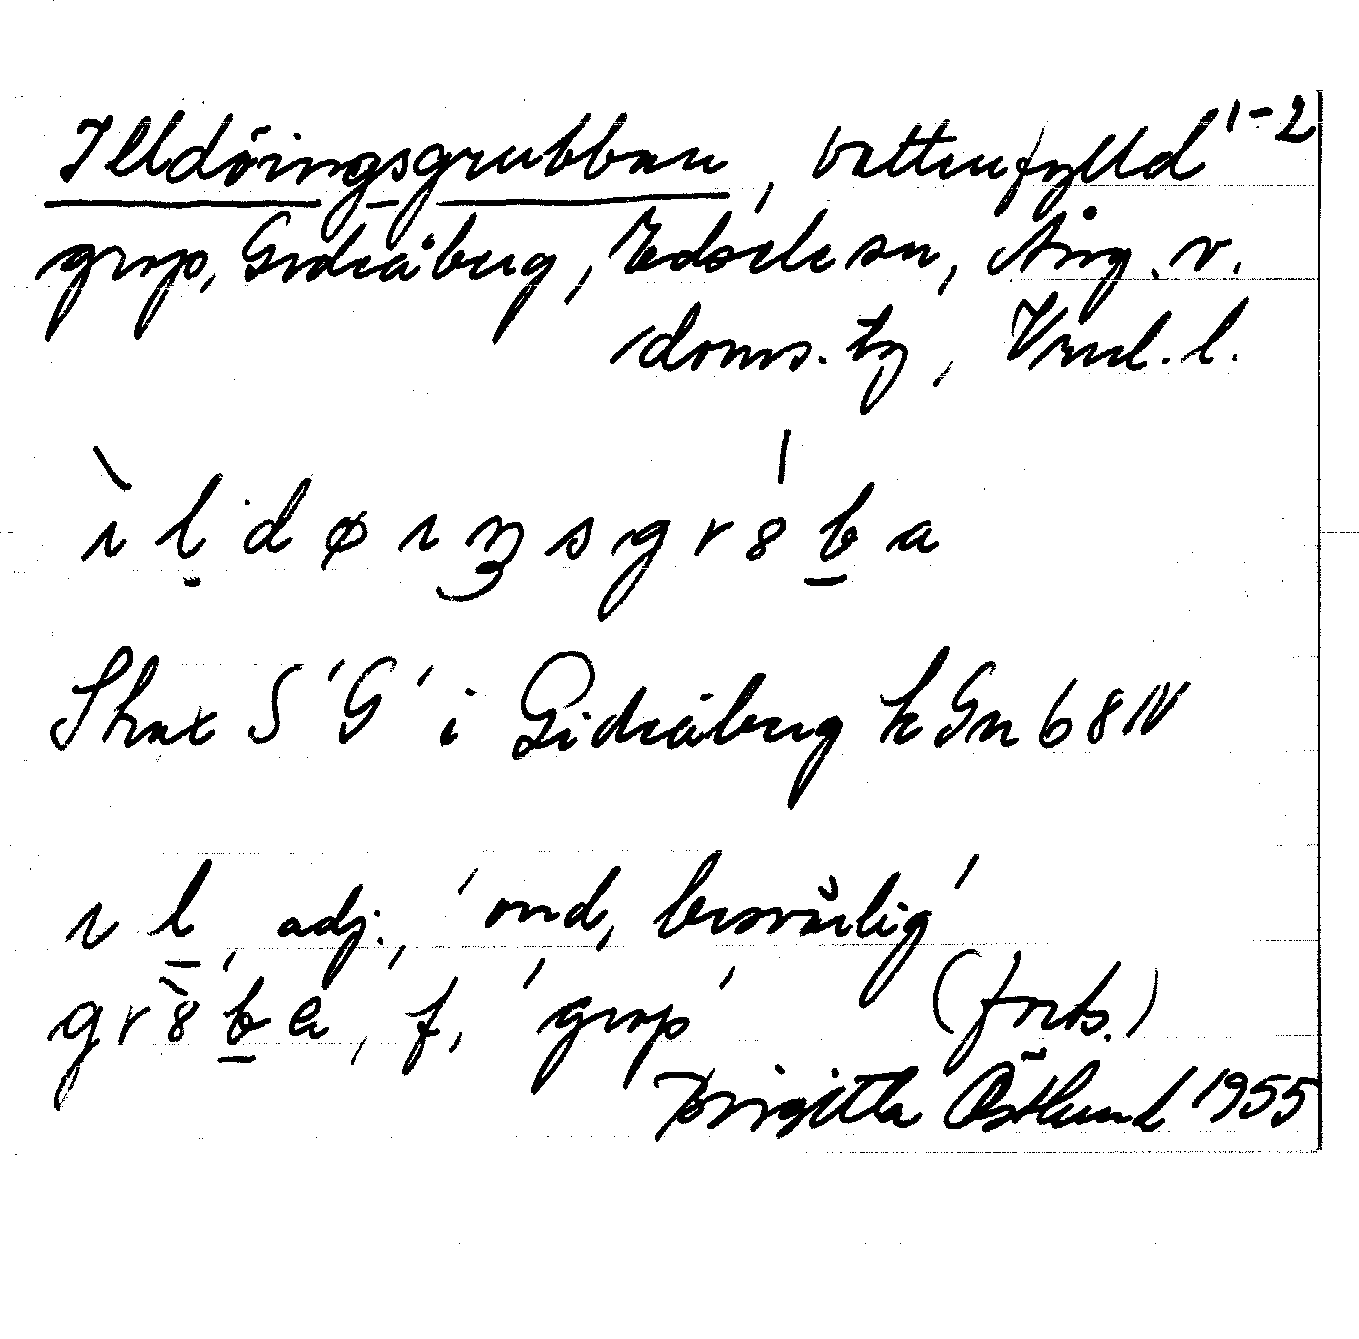 Illdöingsgrubban, vattenfylld 1-2
grop, Gideåberg, Edsele sn, Ång. v.
doms. tg, Vnl. l.
ìl̠døıŋsgr8́b̠a
Strax S 'G' i Gideåberg k Gn 68 IV
ıl̠, adj., 'ond, besvärlig'
gr8̀b̠a, f, 'grop' (forts.)
Birgitta Östlund 1955